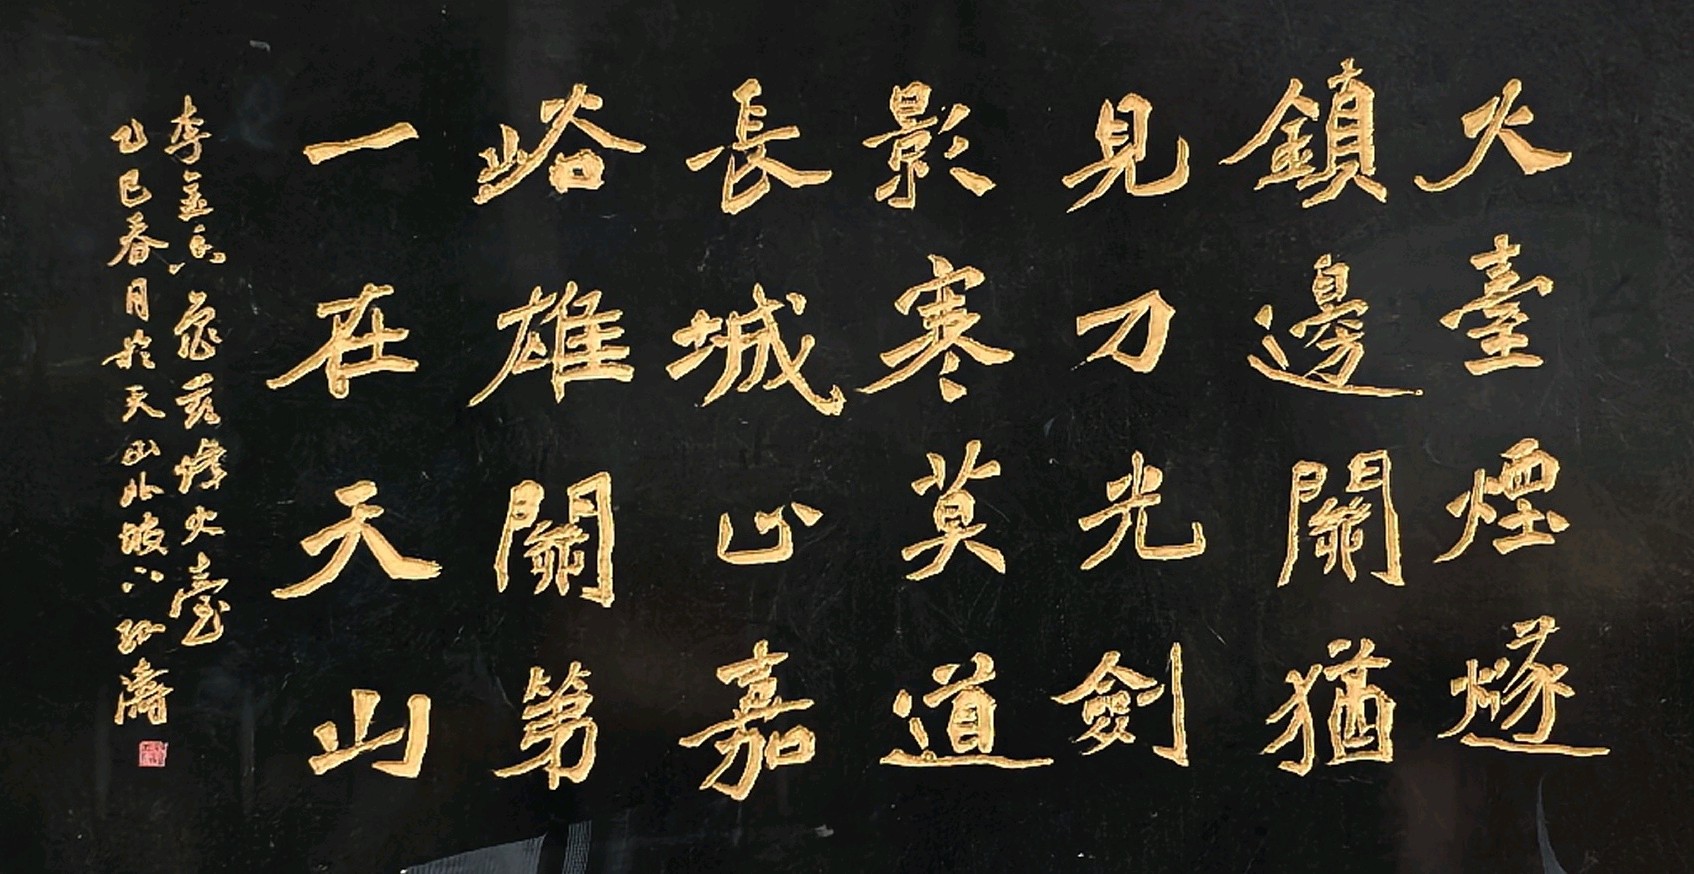 火臺煙燧
鎖邊關猶
見刀光劍
影寒莫道
長城止嘉
峪雄關第
一在天山
李金玉龜茲烽火臺
乙巳春月於天山北坡